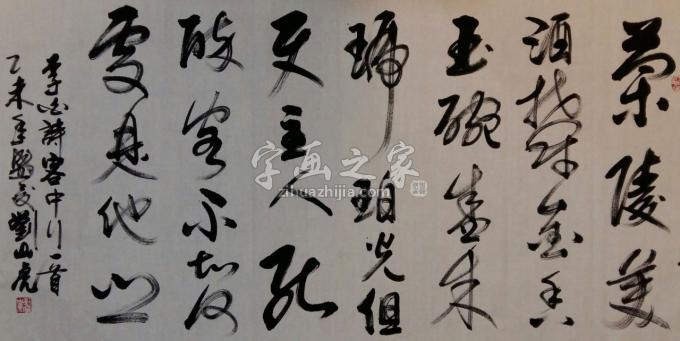 蘭陵美
酒鬱金香
玉碗盛来
琥珀光但
使主人能
醉客不知何
處是他乡
李白詩客中行一首
乙未年劉山虎
字画之家
zihuazhijia.com